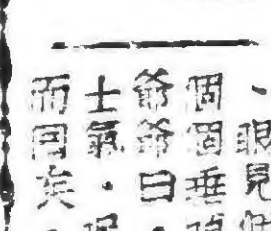 、眼見
個個垂頭
爺爺曰・
士氣・
而回矣・